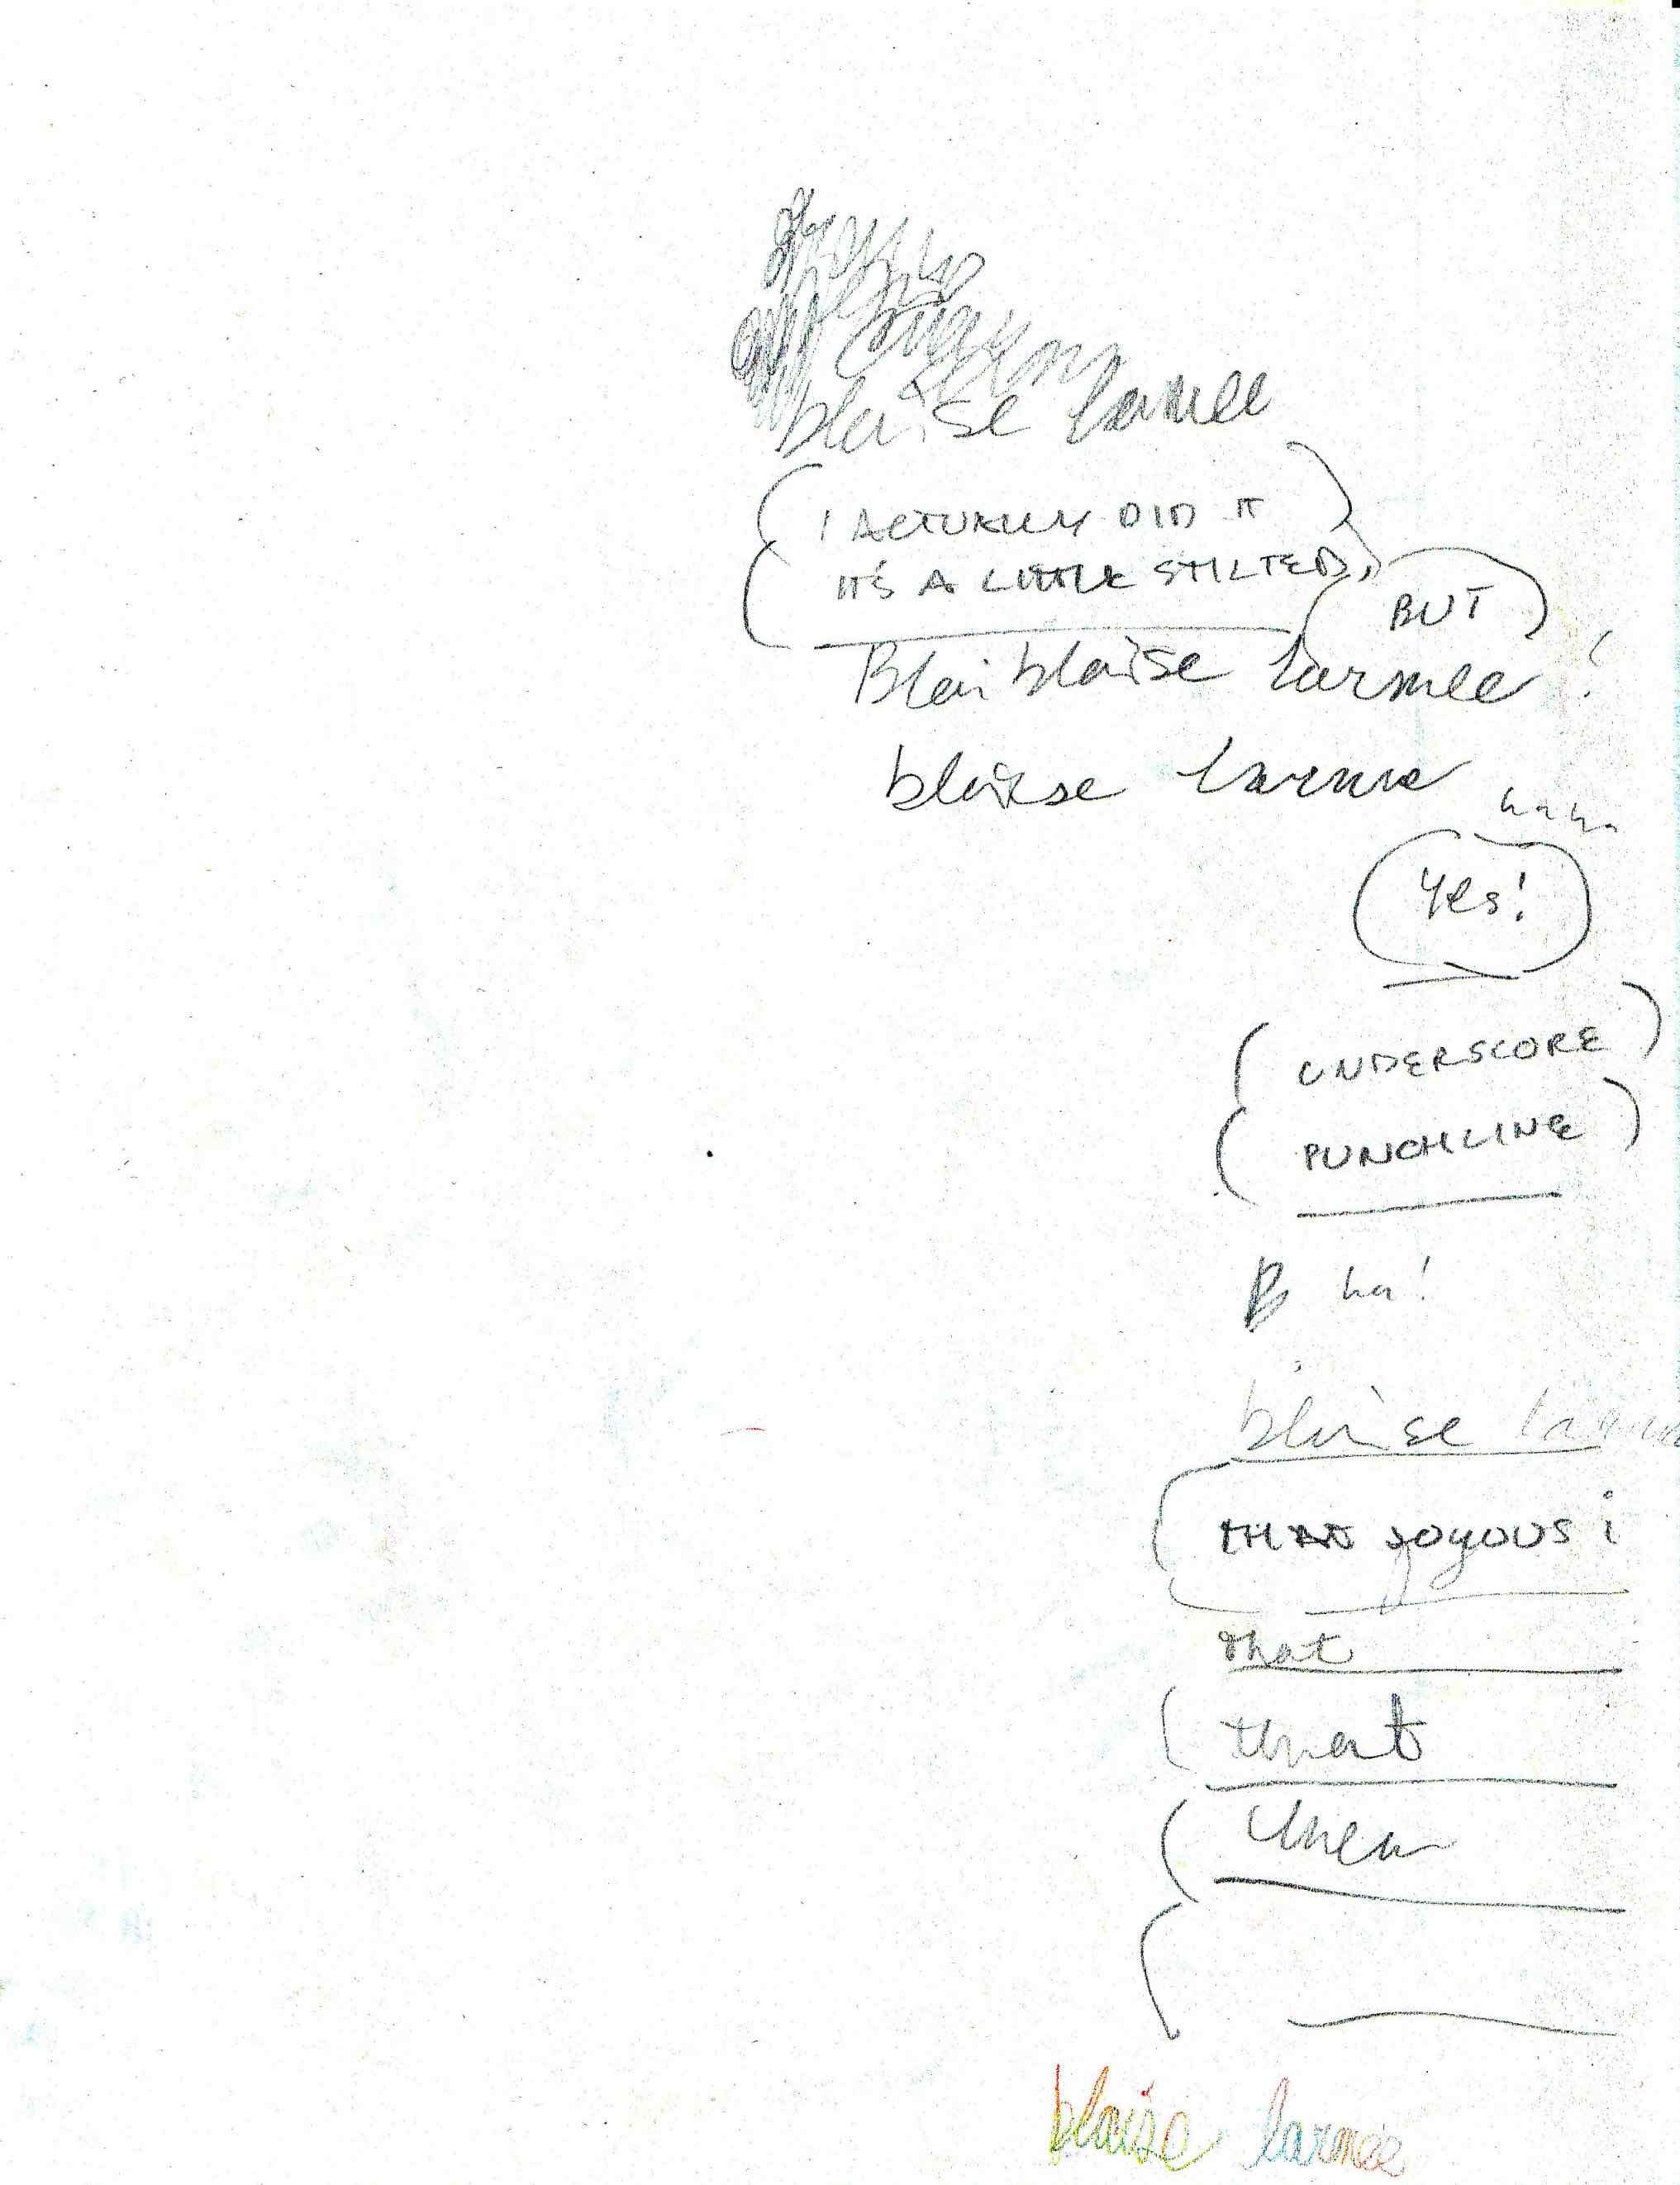 blaise larmee
I ACTUALLY DID IT
IT'S A LITTLE STILTED,
BUT
Blai blaise larmee !
blaise larmee
haha
Yes!
UNDERSCORE
PUNCHLINE
B ha!
blaise
THAT JOYOUS i
that
that
then
blaise larmee